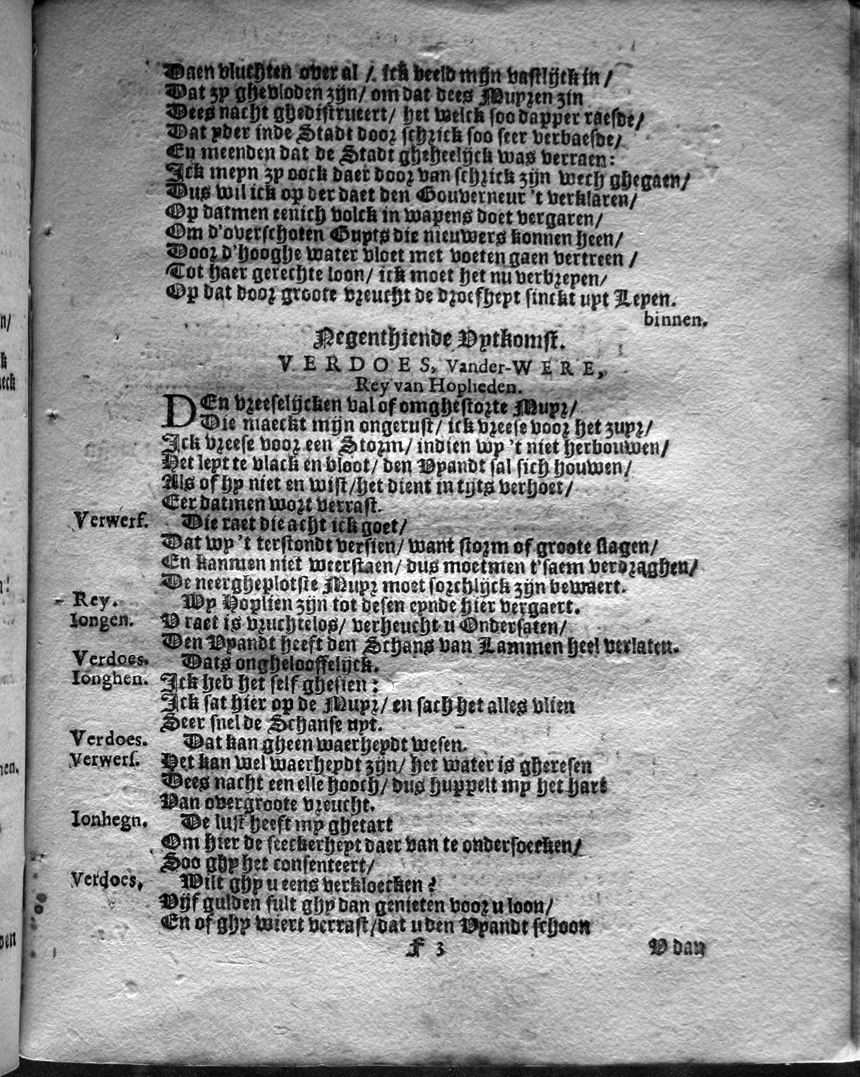 Daen vluchten over al / ick beeld mijn vastlijck in /
Dat zy ghevloden zijn / om dat dees Muyren zin
Dees nacht ghedistrueert / het welck soo dapper raesde /
Dat yder inde Stadt door schrick soo seer verbaesde /
En meenden dat de Stadt gheheelijck was verraen:
Ick meyn zy oock daer door van schrick zijn wech ghegaen /
Dus wil ick op der daet den Gouverneur 't verklaren /
Op datmen eenich volck in wapens doet vergaren /
Om d'overschoten Guyts die nieuwers konnen heen /
Door d'hooghe water vloet met voeten gaen vertreen /
Tot haer gerechte loon / ick moet het nu verbreyen /
Op dat door groote vreucht de droefheyt sinckt uyt Leyen.
binnen.
Negenthiende Uytkomst.
VERDOES, Vander-WERE,
Rey van Hoplieden.
DEn vreeselijcken val of omghestorte Muyr /
Die maeckt mijn ongerust / ick vreese voor het zuyr /
Ick vreese voor een Storm / indien wy 't niet herbouwen /
Het leyt te vlack en bloot / den Vyandt sal sich houwen /
Als of hy niet en wist / het dient in tijts verhoet /
Eer datmen wort verrast.
Verwerf. Die raet die acht ick goet /
Dat wy 't terstondt versien / want storm of groote slagen /
En kanmen niet weerstaen / dus moetmen t'saem verdraghen /
De neergheplotste Muyr moet sorchlijck zijn bewaert.
Rey. Wy Hoplien zijn tot desen eynde hier vergaert.
Iongen. U raet is vruchteloos / verheucht u Ondersaten /
Den Vyandt heeft den Schans van Lammen heel verlaten.
Verdoes. Dats onghelooffelijck.
Ionghen. Ick heb het self ghesien:
Ick sat hier op de Muyr / en sach het alles vlien
Seer snel de Schanse uyt.
Verdoes. Dat kan gheen waerheydt wesen.
Verwerf. Het kan wel waerheydt zijn / het water is gheresen
Dees nacht een elle hooch / dus huppelt my het hart
Van overgroote vreucht.
Ionhegn. De lust heeft my ghetart
Om hier de seeckerheyt daer van te ondersoecken /
Soo ghy het consenteert /
Verdoes, Wilt ghy u eens verkloecken?
Vijf gulden sult ghy dan genieten voor u loon /
En of ghy wiert verrast / dat u den Vyandt schoon
F 3
V dan